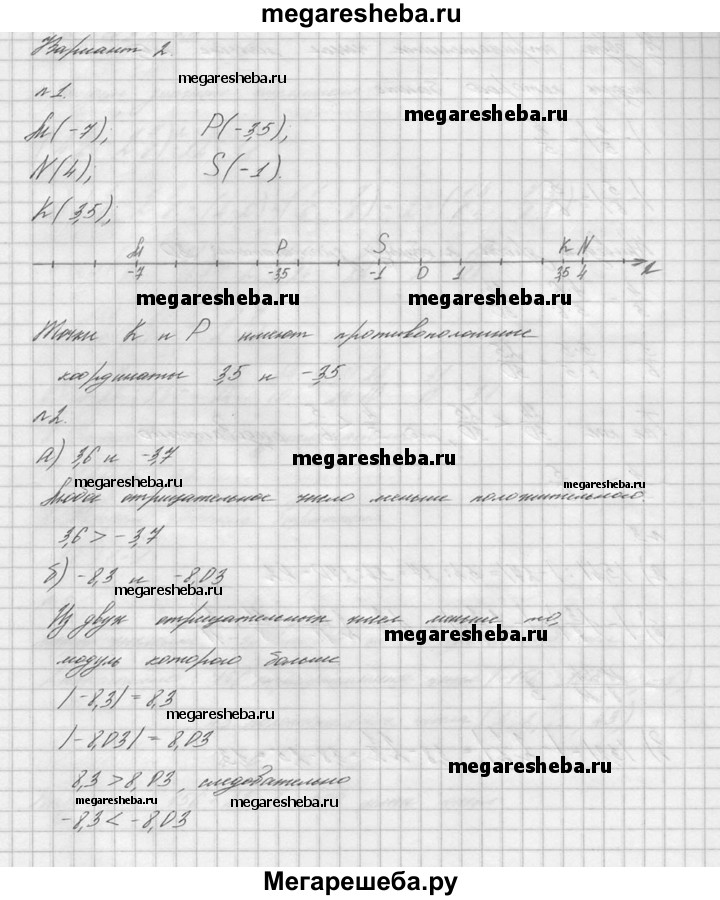 megaresheba.ru
Вариант 2.
megaresheba.ru
№1.
megaresheba.ru
M(-7); P(-3,5);
N(4); S(-1).
K(3,5);
M P S K N
-7 -3,5 -1 0 1 3,5 4 x
megaresheba.ru megaresheba.ru
Точки K и P имеют противоположные
координаты 3,5 и -3,5
№2.
а) 3,6 и -3,7
megaresheba.ru
megaresheba.ru megaresheba.ru
Любое отрицательное число меньше положительного.
3,6 > -3,7
б) -8,3 и -8,03
megaresheba.ru
Из двух отрицательных чисел меньше то,
megaresheba.ru
модуль которого больше
|-8,3| = 8,3
megaresheba.ru
|-8,03| = 8,03
megaresheba.ru
8,3 > 8,03, следовательно
megaresheba.ru megaresheba.ru
-8,3 < -8,03
Мегарешеба.ру